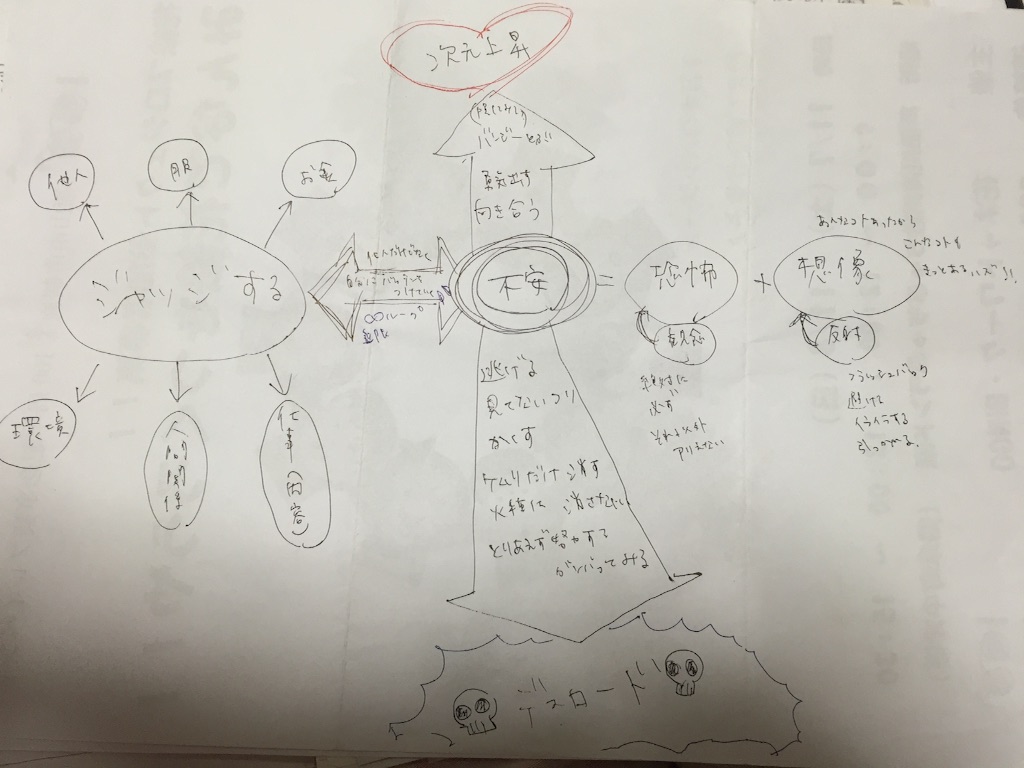 次元上昇
バンジーとぶ
勇気出す
向き合う
他人
服
お金
ジャッジする
環境
人間関係
仕事(内容)
他人だけでなく
自分に
∞ループ
無限
不安
=
恐怖
+
想像
観念
絶対に
必ず
それ以外
アリえない
あんなコトあったから
こんなコトも
きっとあるハズ!!
反射
フラッシュバック
逃げる
イライラする
引っかかる。
逃げる
見てないフリ
かくす
ケムリだけ消す
火種は消さない
とりあえず努力する
がンバってみる
デスロード